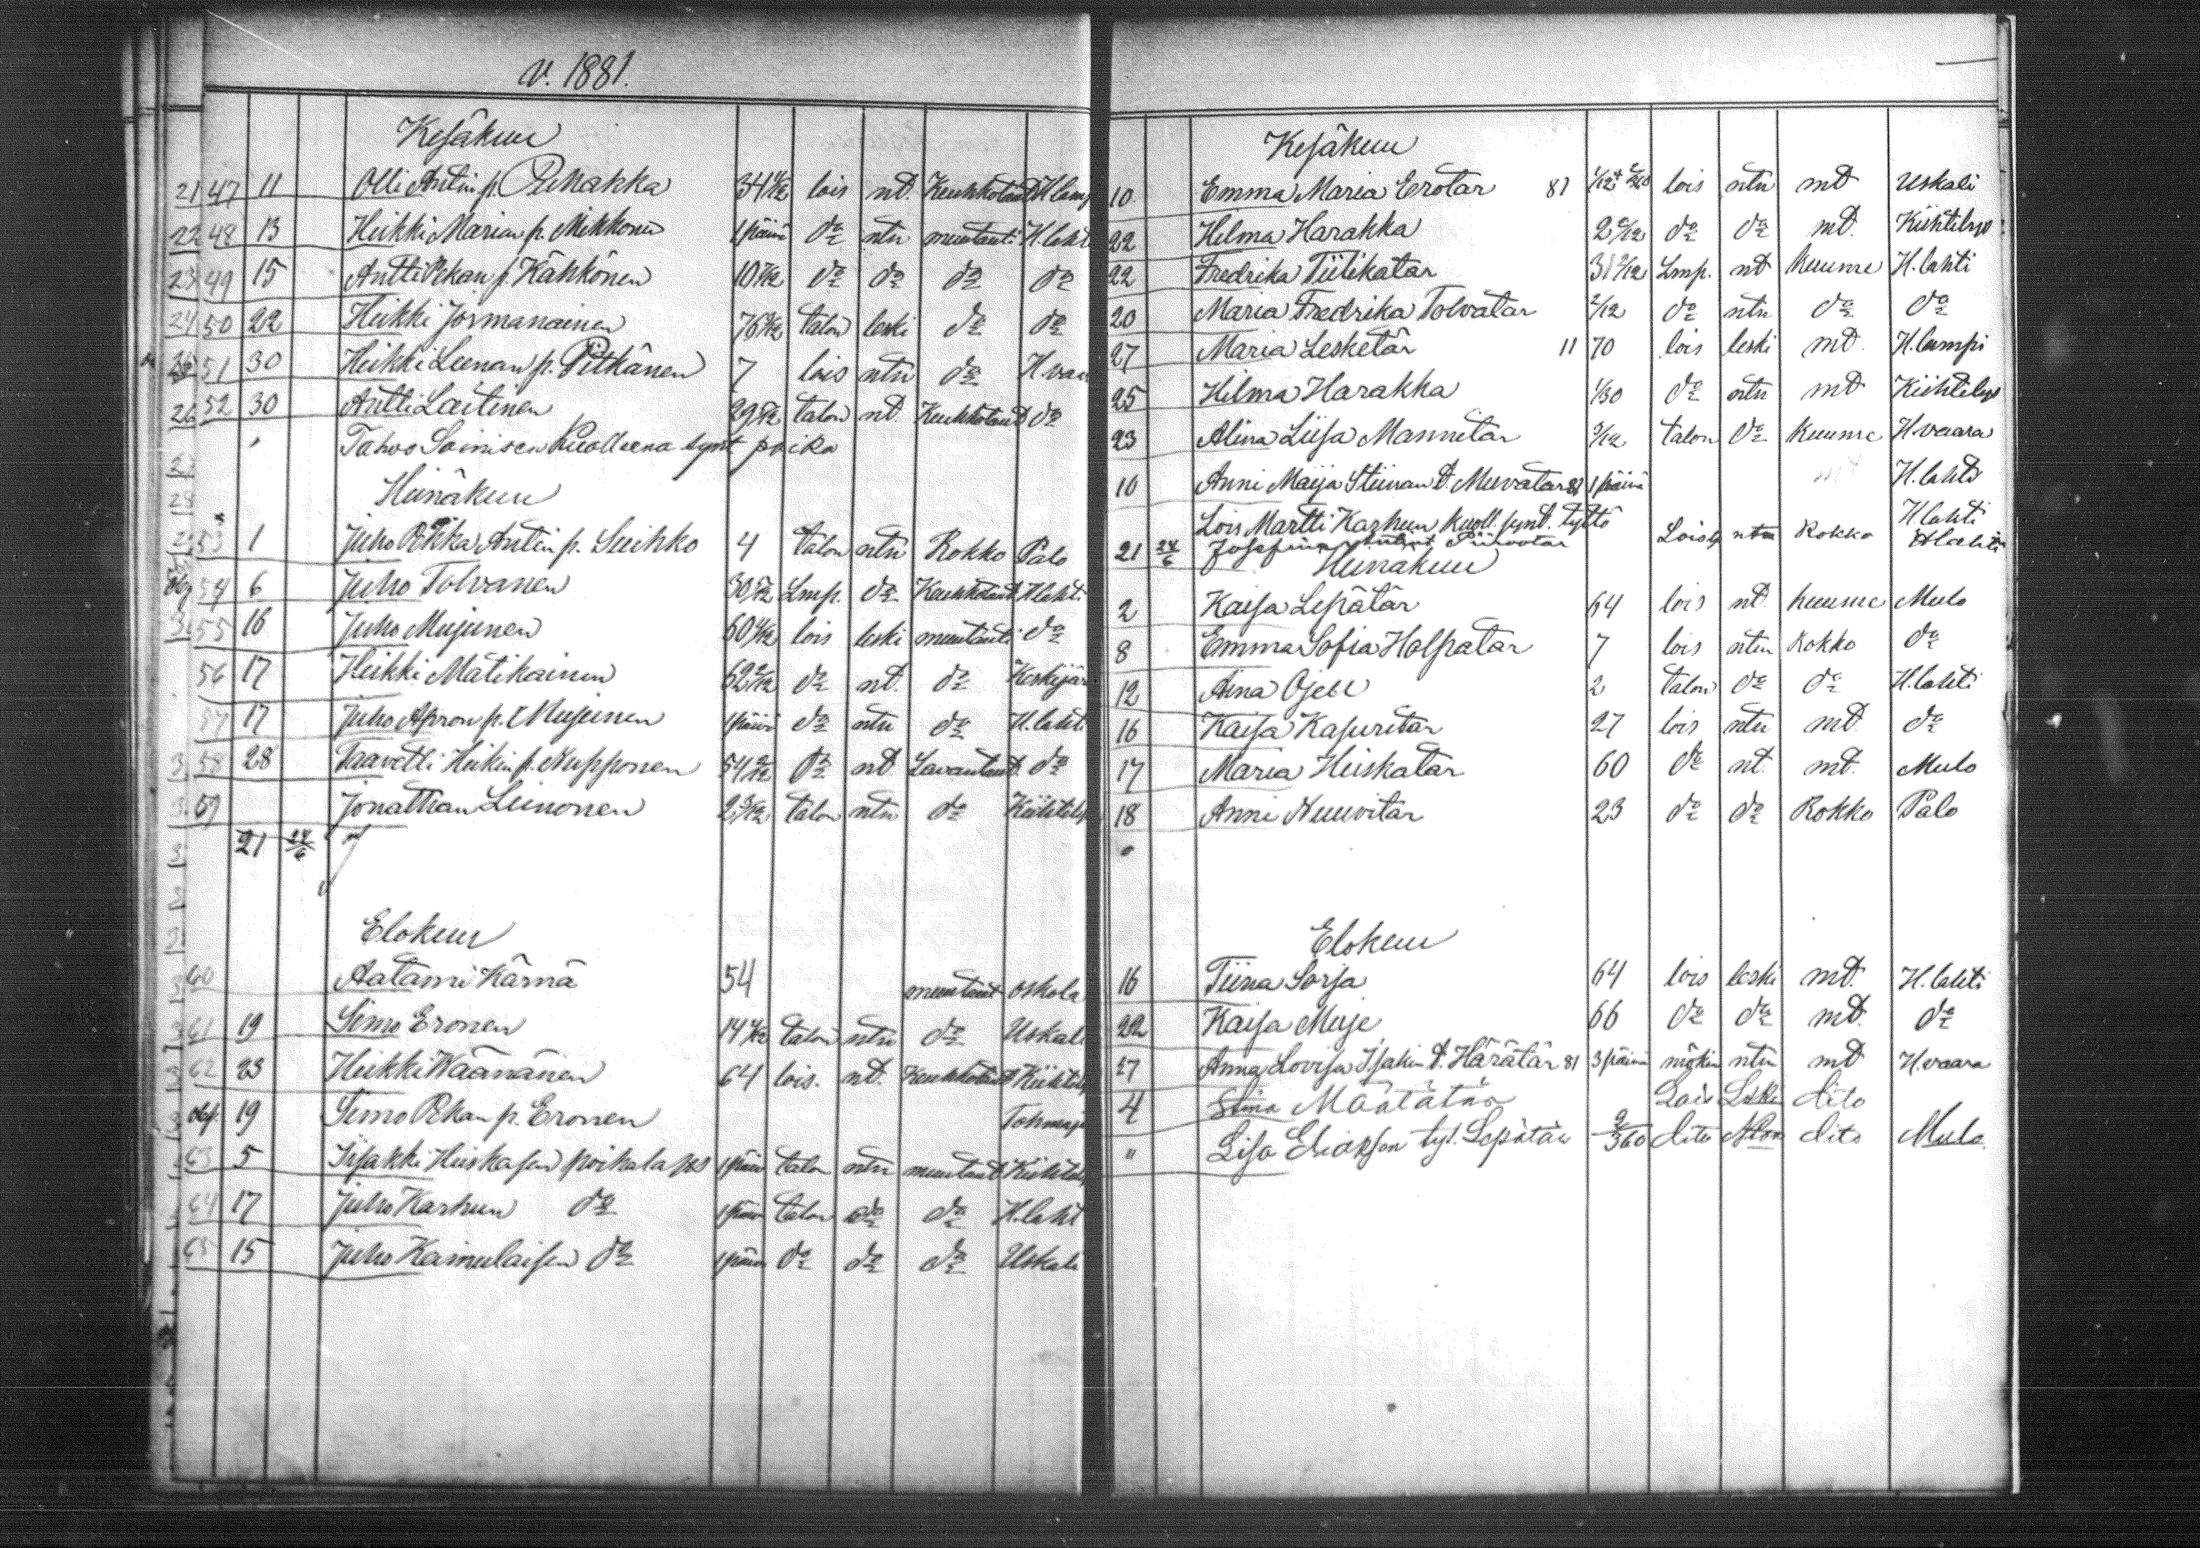 v. 1881.
Kesäkuu
21 47 11 Olli Antin p. Pekakka 34 lois nt. Keuhkotaut H.lamp
22 48 13 Heikki Marian p. Mikkonen 1 päivä do ntn muu tauti H.laht
23 49 15 Antti Pekan p. Kähkönen 10 do do do do
24 50 22 Heikki Jormanainen 76 talon leski do do
51 30 Heikki Leenan p. Pitkänen 7 lois ntn do H.vaa
26 52 30 Antti Laitinen 29 talon nt. Keuhkotaut do
Tahvo Soinisen Kuolleena synt poika
Heinäkuu
53 1 Juho Pekka Antin p. Suhko 4 talon ntn Rokko Palo
54 6 Juho Tolvanen 30 Lmp. do Keuhkotaut H.laht.
55 16 Juho Mujunen 60 lois leski muu tauti do
56 17 Heikki Matikainen 62 do nt. do Keskijär
57 17 Juho Apron p. Mujunen 1 päivä do ntn do H.lahti
58 28 Taavetti Heikin p. Nupponen 54 do nt Lavantaut. do
59 Jonathan Leinonen 2 talon ntn do Kiihtelys
21 24/6
Elokuu
60 Aatami Kärnä 54 muu taut Oskola
61 19 Simo Eronen 14 talon ntn do Uskali
62 23 Heikki Wäänänen 64 lois. nt. Keuhkotaut Kiihtely
19 Simo Pekan p. Eronen Tohmaj
63 5 Iisakki Hiiskasen poikalaps 1 päiv talon ntn muu taut Kiihtely
64 17 Juho Karhun do 1 päiv talon do do H.laht
65 15 Juho Kaimulaisen do 1 päiv do do do Uskali
Kesäkuu
10 Emma Maria Erotar 81 lois ntn mt Uskali
22 Hilma Harakka 2 do do mt. Kiihtelys
22 Fredrika Tiilikatar 31 Lmp. nt kuume H.lahti
20 Maria Fredrika Tolvatar 2/12 do ntn do do
27 Maria Lesketär 11 70 lois leski mt. H.lampi
25 Hilma Harakka 1/30 do ntn mt Kiihtelys
23 Alina Liisa Mannitar 9/12 talon do kuume H.vaara
10 Anni Maija Stiinan t. Muvatar 81 1 päivä H.lahti
Lois Martti Karhun kuoll. synt. tyttö H.lahti
21 24/6 Josefina Piirootar Lois ntn Rokko H.lahti
Heinäkuu
2 Kaisa Lepätär 64 lois nt. kuume Mulo
8 Emma Sofia Holpatar 7 lois ntn Rokko do
12 Aina Ojell 2 talon do do H.lahti
16 Kaisa Kapuritar 27 lois ntn mt. do
17 Maria Hiiskatar 60 do nt. mt. Mulo
18 Anni Nuuvitar 23 do do Rokko Palo
Elokuu
16 Tiina Sorsa 64 lois leski mt. H.lahti
22 Kaisa Muje 66 do do mt. do
27 Anna Lovisa Isakin t. Härätär 81 3 päivä mökin ntn mt H.vaara
4 Stina Määtätär Lois Leski dito
" Lisa Eliaksen tyt. Lepätär 9/360 dito Nton dito Mulo